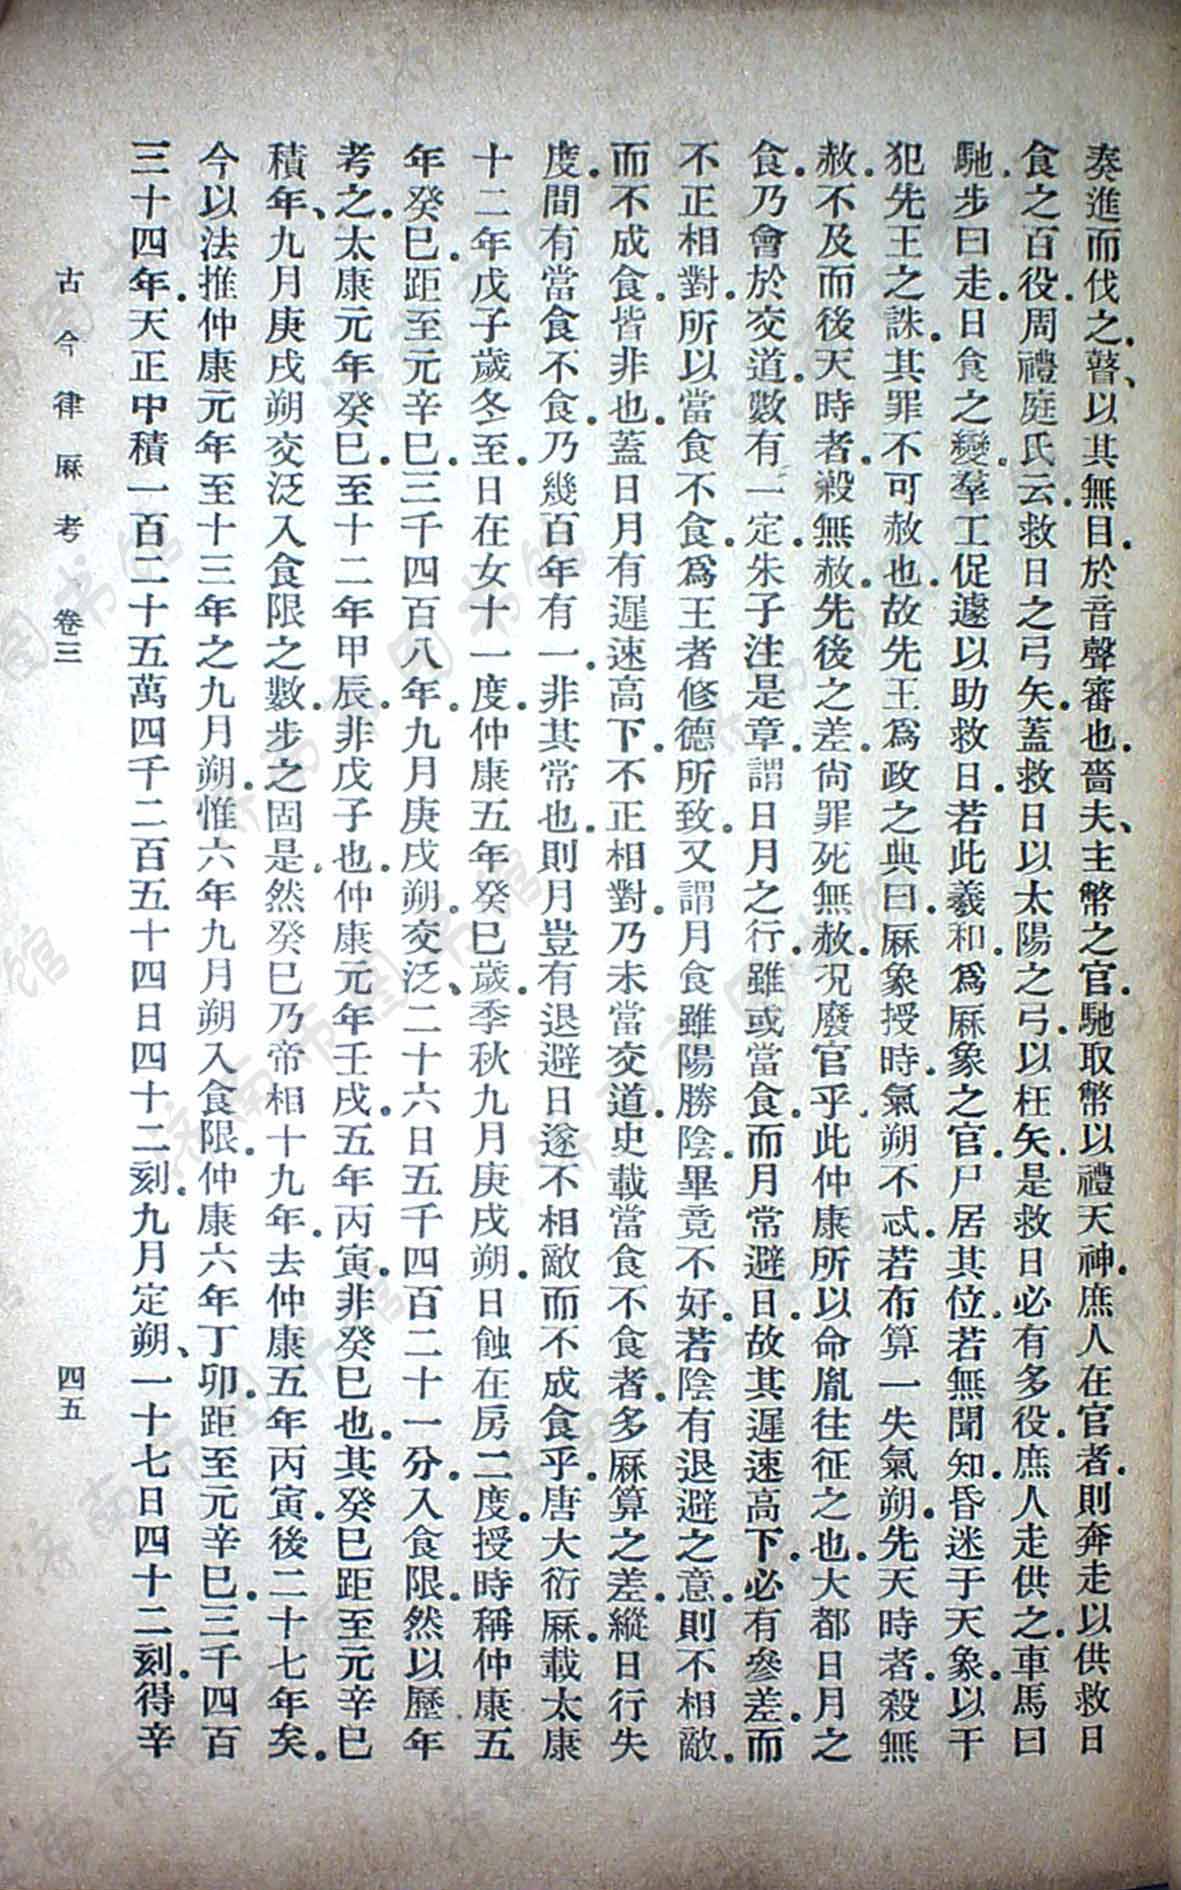 奏進而伐之。瞽、以其無目。於音聲審也。嗇夫、主幣之官。馳取幣以禮天神。庶人在官者。則奔走以供救日
食之百役。周禮庭氏云。救日之弓矢。蓋救日以太陽之弓。以枉矢。是救日必有多役。庶人走供之。車馬曰
馳。步曰走。日食之變。羣工促遽以助救日。若此羲和。爲厤象之官。尸居其位。若無聞知。昏迷于天象。以干
犯先王之誅。其罪不可赦也。故先王爲政之典曰。厤象授時。氣朔不忒。若布算一失氣朔。先天時者。殺無
赦。不及而後天時者。殺無赦。先後之差。尙罪死無赦。況廢官乎。此仲康所以命胤往征之也。大都日月之
食。乃會於交道。數有一定。朱子注是章。謂日月之行。雖或當食。而月常避日。故其遲速高下。必有參差。而
不正相對。所以當食不食。爲王者修德所致。又謂月食雖陽勝陰。畢竟不好。若陰有退避之意。則不相敵。
而不成食。皆非也。蓋日月有遲速高下。不正相對。乃未當交道。史載當食不食者。多厤算之差。縱日行失
度。間有當食不食。乃幾百年有一。非其常也。則月豈有退避日。遂不相敵而不成食乎。唐大衍厤。載太康
十二年戊子歲冬至。日在女十一度。仲康五年癸巳歲。季秋九月庚戌朔。日蝕在房二度。授時稱仲康五
年癸巳。距至元辛巳。三千四百八年。九月庚戌朔。交泛、二十六日五千四百二十一分。入食限。然以歷年
考之。太康元年癸巳。至十二年甲辰。非戊子也。仲康元年壬戌。五年丙寅。非癸巳也。其癸巳距至元辛巳
積年、九月庚戌朔交泛入食限之數。步之固是。然癸巳乃帝相十九年。去仲康五年丙寅。後二十七年矣。
今以法推仲康元年至十三年之九月朔。惟六年九月朔入食限。仲康六年丁卯。距至元辛巳。三千四百
三十四年。天正中積一百二十五萬四千二百五十四日四十二刻。九月定朔、一十七日四十二刻。得辛
古今律厤考　卷三　四五